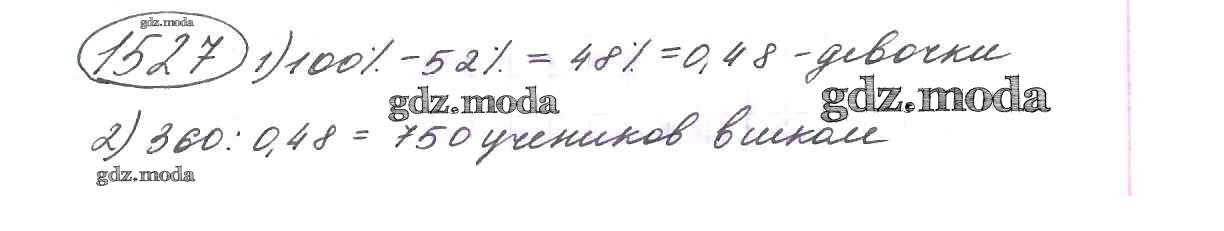 gdz.moda
1527 1) 100% - 52% = 48% = 0,48 - девочки
gdz.moda gdz.moda
2) 360 : 0,48 = 750 учеников в школе
gdz.moda